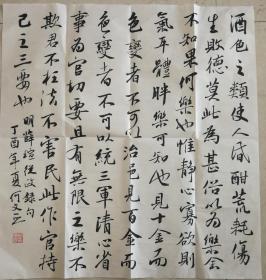 酒色之類使人昏酣荒耗傷
生敗德莫此為甚俗以為樂余
不知果何樂也惟静心寡欲則
氣平體胖樂可知也見十金而
色變者不可以治邑見百金而
色變者不可以統三軍清心省
事為官切要且有無限之樂不
欺君不枉法不害民此作官持
己之三要也 明薛瑄從政錄句
丁酉年夏何